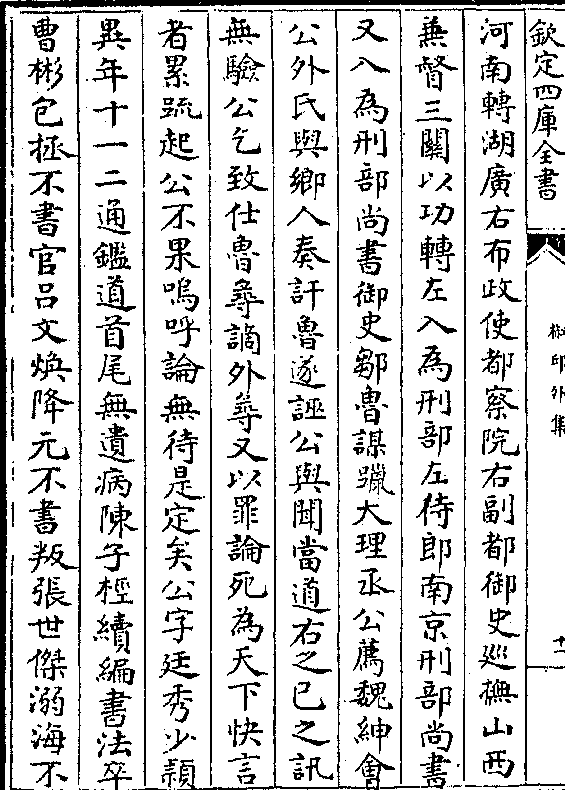 欽定四庫全書
椒邱外集
十一
河南轉湖廣右布政使都察院右副都御史廵撫山西
兼督三關以功轉左入為刑部左侍郎南京刑部尚書
又入為刑部尚書御史鄒魯謀躐大理丞公薦魏紳會
公外氏與鄉人奏訐魯遂誣公與聞當道右之已之訊
無驗公乞致仕魯尋謫外尋又以罪論死為天下快言
者累疏起公不果嗚呼論無待是定矣公字廷秀少頴
異年十一二通鑑道首尾無遺病陳子桱續編書法卒
曹彬包拯不書官吕文煥降元不書叛張世傑溺海不